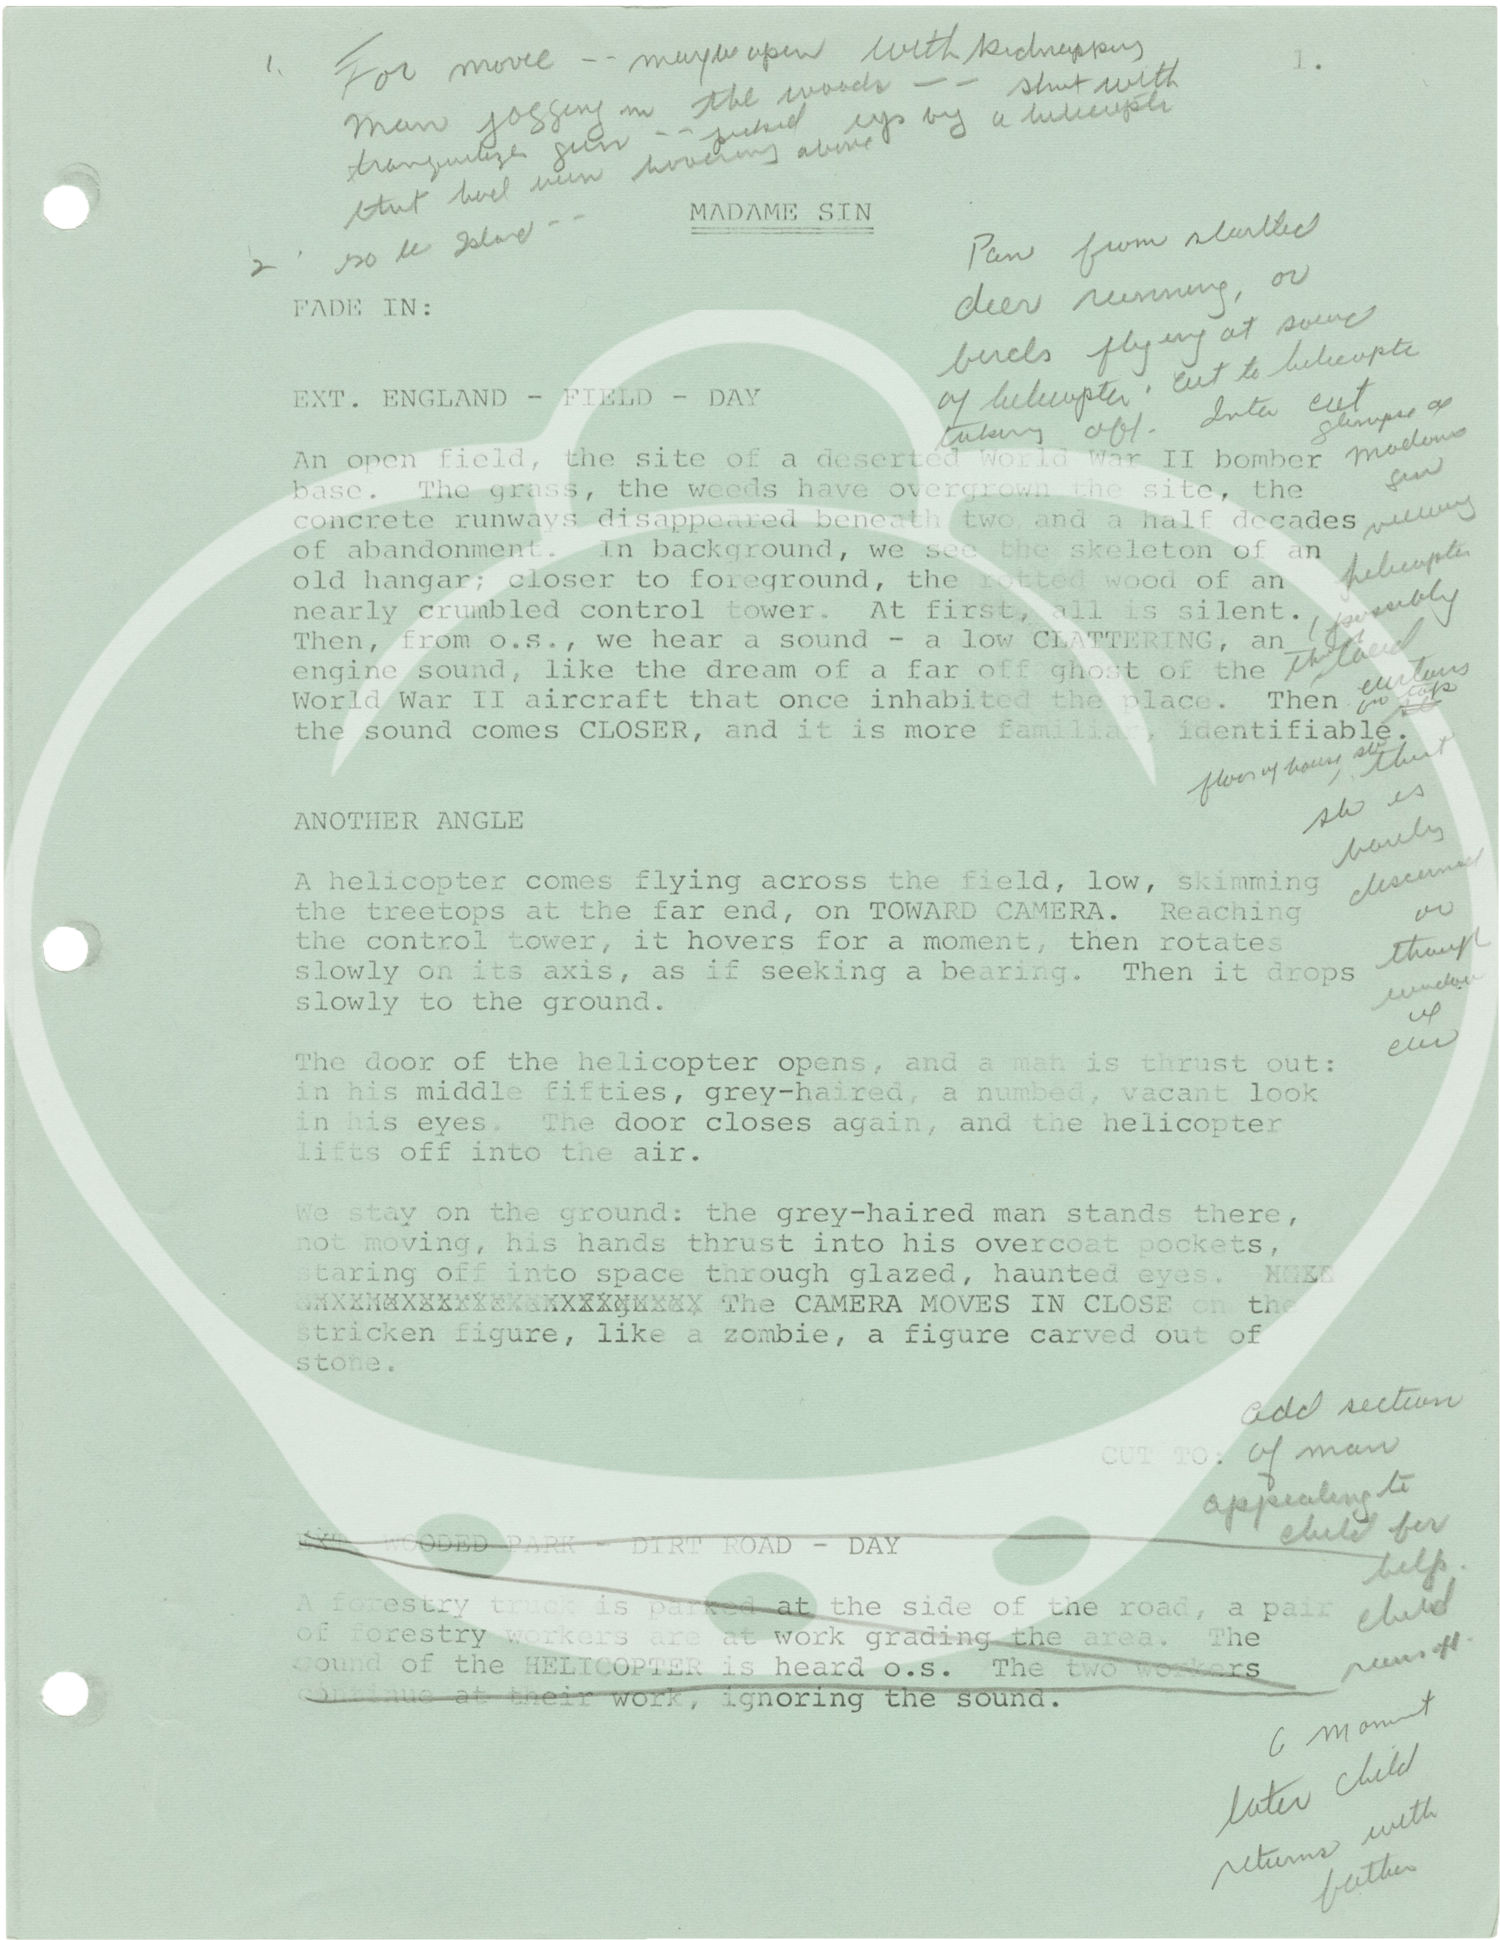 1. For movie -- maybe open with kidnapping
1.
Man jogging in the woods -- shot with
tranquilizer gun -- picked up by a helicopter
that had been hovering above
2. to le Island --
MADAME SIN
Pan from startled
deer running, or
birds flying at sound
of helicopter. Cut to helicopter
taking off. Inter cut
glimpse of
Madame
Sin
viewing
helicopter
possibly
curtains
top
floor of house so that
she is
barely
discerned
or
through
window
of
car
FADE IN:
EXT. ENGLAND - FIELD - DAY
An open field, the site of a deserted World War II bomber
base. The grass, the weeds have overgrown the site, the
concrete runways disappeared beneath two and a half decades
of abandonment. In background, we see the skeleton of an
old hangar; closer to foreground, the rotted wood of an
nearly crumbled control tower. At first, all is silent.
Then, from o.s., we hear a sound - a low CLATTERING, an
engine sound, like the dream of a far off ghost of the
World War II aircraft that once inhabited the place. Then
the sound comes CLOSER, and it is more familiar, identifiable.
ANOTHER ANGLE
A helicopter comes flying across the field, low, skimming
the treetops at the far end, on TOWARD CAMERA. Reaching
the control tower, it hovers for a moment, then rotates
slowly on its axis, as if seeking a bearing. Then it drops
slowly to the ground.
The door of the helicopter opens, and a man is thrust out:
in his middle fifties, grey-haired, a numbed, vacant look
in his eyes. The door closes again, and the helicopter
lifts off into the air.
We stay on the ground: the grey-haired man stands there,
not moving, his hands thrust into his overcoat pockets,
staring off into space through glazed, haunted eyes.
The CAMERA MOVES IN CLOSE on the
stricken figure, like a zombie, a figure carved out of
stone.
CUT TO:
add section
of man
appealing to
child for
help.
child
runs off.
a moment
later child
returns with
father
EXT. WOODED PARK - DIRT ROAD - DAY
A forestry truck is parked at the side of the road, a pair
of forestry workers are at work grading the area. The
sound of the HELICOPTER is heard o.s. The two workers
continue at their work, ignoring the sound.